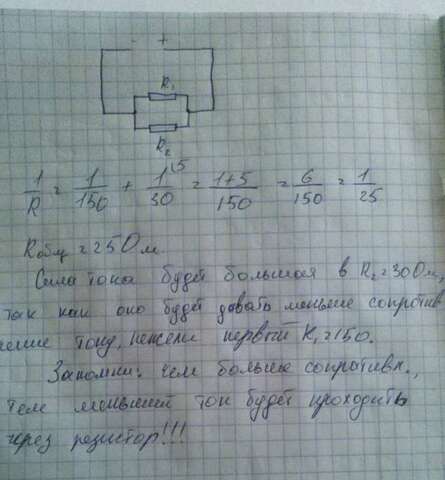 - +
R₁
R₂
1/R = 1/150 + 1/30 \5 = 1+5/150 = 6/150 = 1/25
Rобщ = 25 Ом.
Сила тока будет большая в R₂ = 30 Ом,
так как оно будет давать меньше сопротив
ление току, нежели первый R₁ = 150.
Запомни: чем больше сопротивл.,
тем меньший ток будет проходить
через резистор!!!